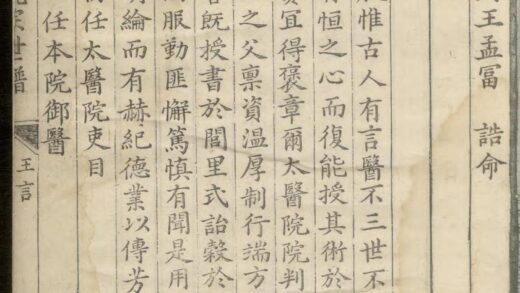 王孟冨 誥命
惟古人有言醫不三世不
有恒之心而復能授其術於
宜得褒章爾太醫院院判
之父禀資温厚制行端方
既授書於閭里式詒穀於
服勤匪懈篤慎有聞是用
綸而有赫紀德業以傳芳
任太醫院吏目
任本院御醫
世譜 王言